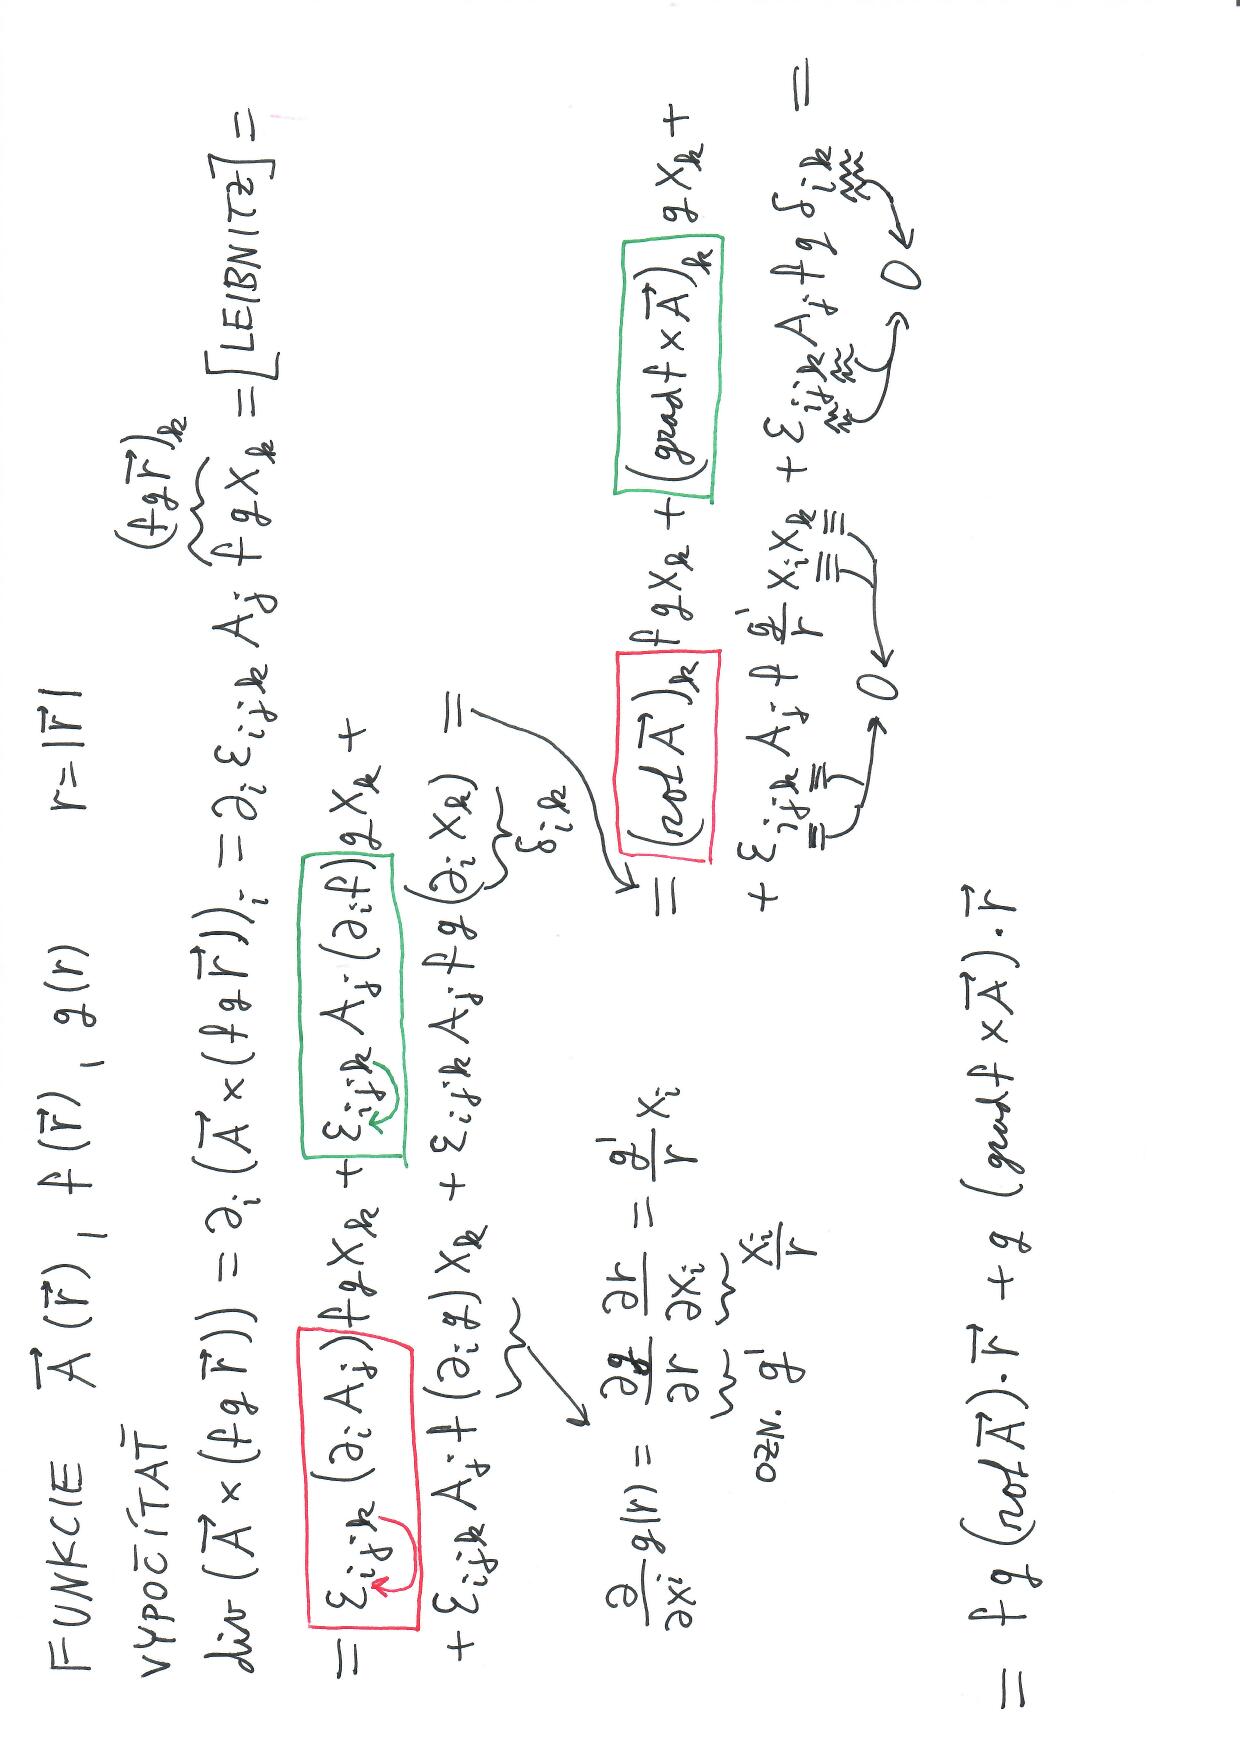 FUNKCIE A⃗(r⃗), f(r⃗), g(r) r=|r⃗|
VYPOČÍTAŤ
(fgr⃗)ₖ
div(A⃗×(fgr⃗)) = ∂ᵢ(A⃗×(fgr⃗))ᵢ = ∂ᵢεᵢⱼₖAⱼfgxₖ = [LEIBNITZ] =
= εᵢⱼₖ(∂ᵢAⱼ)fgxₖ + εᵢⱼₖAⱼ(∂ᵢf)gxₖ +
+ εᵢⱼₖAⱼf(∂ᵢg)xₖ + εᵢⱼₖAⱼfg(∂ᵢxₖ) =
δᵢₖ
∂/∂xᵢ g(r) = ∂g/∂r ∂r/∂xᵢ = g'/r xᵢ
OZN. g' xᵢ/r
= (rot A⃗)ₖ fgxₖ + (grad f × A⃗)ₖ gxₖ +
+ εᵢⱼₖAⱼf g'/r xᵢxₖ + εᵢⱼₖAⱼfgδᵢₖ =
0 0
= fg(rot A⃗)·r⃗ + g(grad f × A⃗)·r⃗